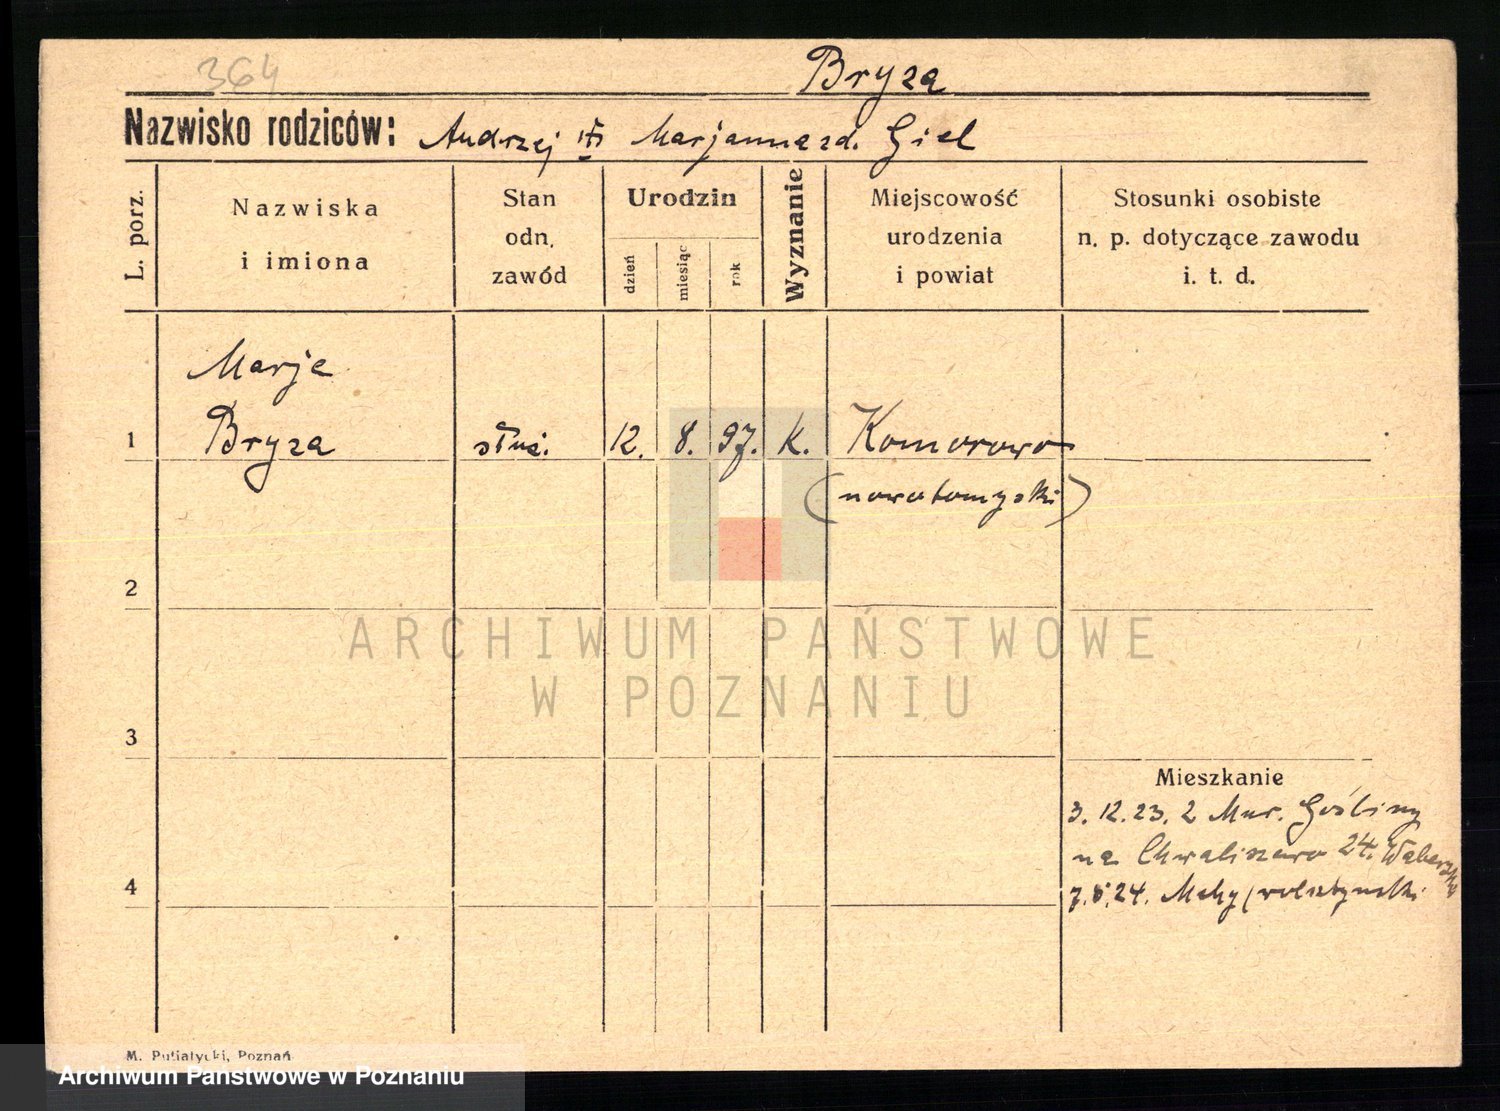 364
Bryza
Nazwisko rodziców: Andrzej i Marjanna zd. Giel
L. porz.
Nazwiska
i imiona
Stan
odn.
zawód
Urodzin
dzień
miesiąc
rok
Wyznanie
Miejscowość
urodzenia
i powiat
Stosunki osobiste
n. p. dotyczące zawodu
i. t. d.
Marja
1 Bryza służ. 12. 8. 97. k. Komorowo
(nowotomyski)
2
ARCHIWUM PAŃSTWOWE
W POZNANIU
3
Mieszkanie
3. 12. 23. z Mur. Gośliny
na Chwaliszewo 24.
4
24. (wolsztyński
M. Putiatycki, Poznań
Archiwum Państwowe w Poznaniu